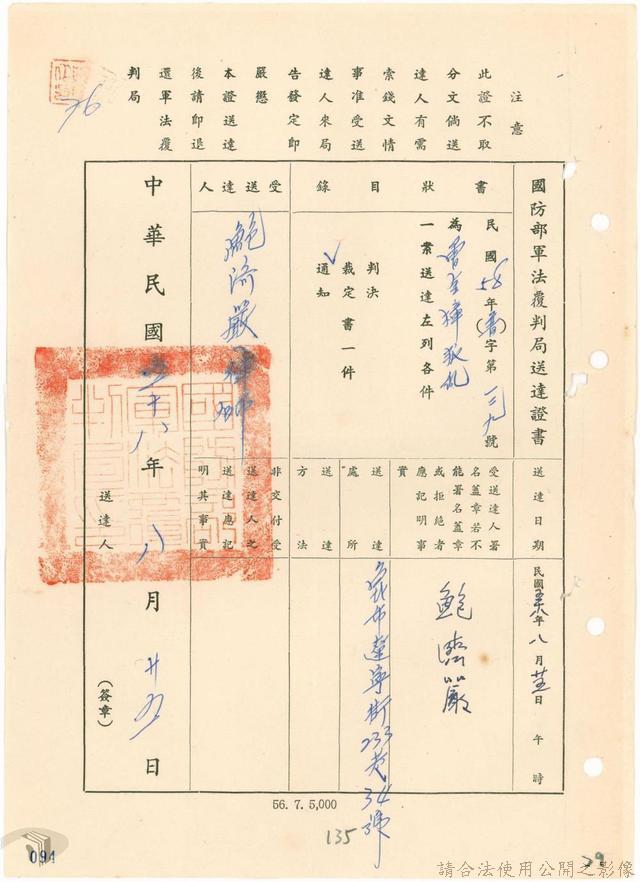 注意
此證不取
分文倘送
達人有需
索錢文情
事准受送
達人來局
告發定即
嚴懲
本證送達
後請即退
還軍法覆
判局
76
國防部軍法覆判局送達證書
書狀目錄
民國58年()字第一三九號
為曾 叛亂
一案送達左列各件
判決
裁定書一件
通知
受送達人
鮑濟嚴律師
送達日期
民國五八年八月廿五日午時
受送達人署
名蓋章若不
能署名蓋章
或拒絕者
應記明事
實
鮑濟嚴
送達處所
北市遼寧街233巷34號
送達方法
非交付受
送達人之
送達應記
明其事實
中華民國五十八年八月廿五日
送達人
(簽章)
56. 7. 5,000
135
094
29
請合法使用公開之影像